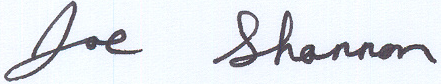 Joe Shannon